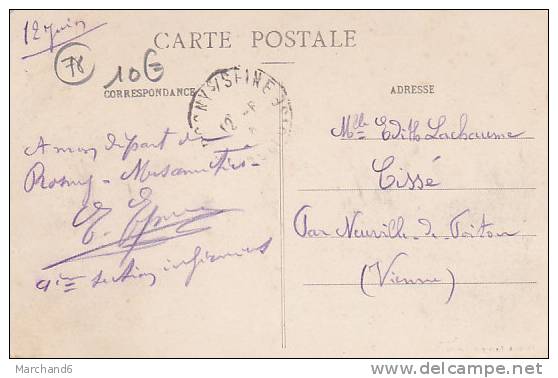 12 Juin
CARTE POSTALE
78
10€
CORRESPONDANCE
ADRESSE
SEINE
12 -6
A mon départ de
Rosny - Mes amitiés -
Mlle Edith Lachaume
Cissé
Par Neuville-de-Poitou
(Vienne)
section infirmiers
Marchand6
delcampe.net